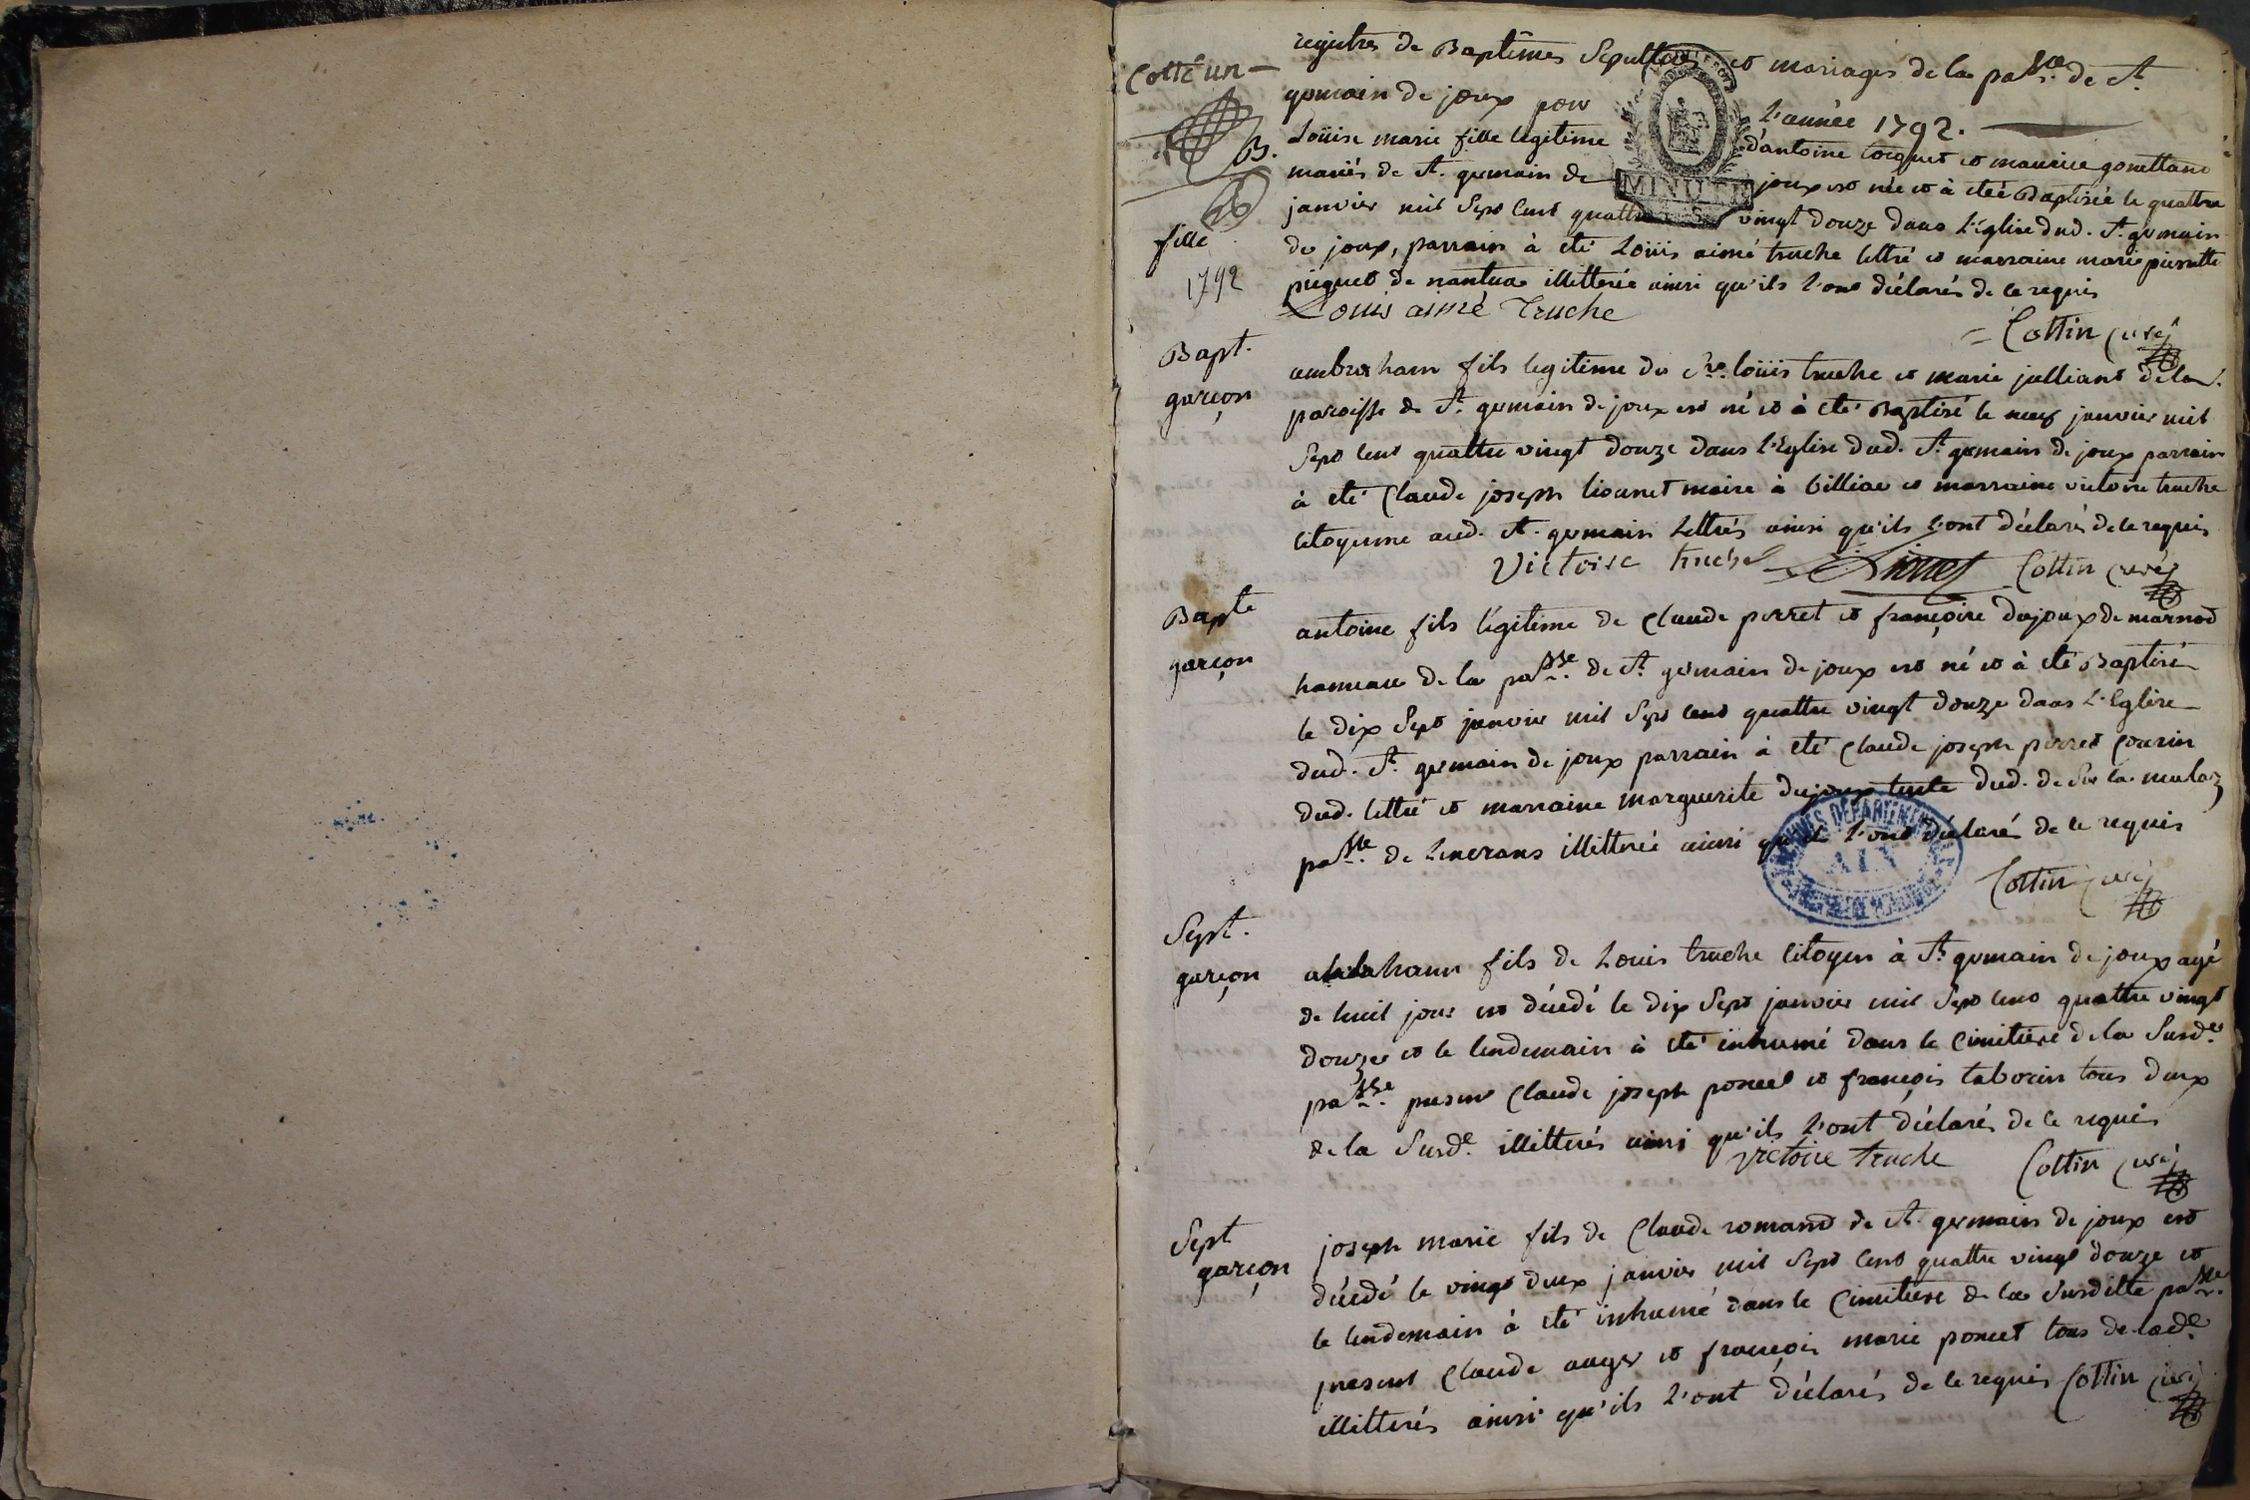 Cotté un
registres de Baptêmes Sepultures et mariages de la pa.sse de St.
germain de joux pour l'année 1792.
B.
fille
1792
Loüise marie fille legitime d'antoine et
mariés de St. germain de joux est née et à eteé Baptisée le quattre
janvier mil Sept Cent quattre vingt douze dans l'Eglise dud. St. germain
de joux, parrain à eté Loüis aimé truche lettré et marraine marie pierrette
de nantua illetterée ainsi qu'ils l'ont déclarés de ce requis
Louis aimé Truche
Cottin curé
Bapt.
garçon
fils legitime de Sr. loüis truche et marie julliant de la
paroisse de St. germain de joux est né et à eté Baptisé le neuf janvier mil
Sept Cent quattre vingt douze dans l'Eglise dud. St. germain de joux parrain
à eté Claude joseph maire à Billiac et marraine victoire truche
Citoyenne aud. St. germain Lettrés ainsi qu'ils l'ont déclarés de ce requis
Victoire truche Cottin curé
Bapte
garçon
antoine fils légitime de Claude perret et françoise dujoux de marnod
hameau de la pa.sse de St. germain de joux est né et à eté Baptisé
le dix Sept janvier mil Sept Cent quattre vingt douze dans l'Eglise
dud. St. germain de joux parrain à eté Claude joseph perret Cousin
dud. lettré et marraine marguerite dujoux tente dud. de Sur la mulaz
pa.sse de illetterée ainsi qu'ils l'ont déclarés de ce requis
ARCHIVES DEPARTEMENTALES
AIN
Cottin curé
Sept.
garçon
fils de Louis truche Citoyen à St. germain de joux agé
de huit jour est décédé le dix Sept janvier mil Sept Cent quattre vingt
douze et le lendemain à eté inhumé dans le Cimitiere de la Susd.e
pa.sse present Claude joseph poncet et françois taborin tous deux
de la Susd.e illitterés ainsi qu'ils l'ont déclarés de ce requis
Victoire Truche Cottin curé
Sept
garçon
joseph marie fils de Claude romand de St. germain de joux est
décédé le vingt deux janvier mil Sept Cent quattre vingt douze et
le lendemain à eté inhumé dans le Cimitiere de la Susditte pa.sse
present Claude auger et françois marie poncet tous de lad.e
illitterés ainsi qu'ils l'ont déclarés de ce requis Cottin curé
MINUTE